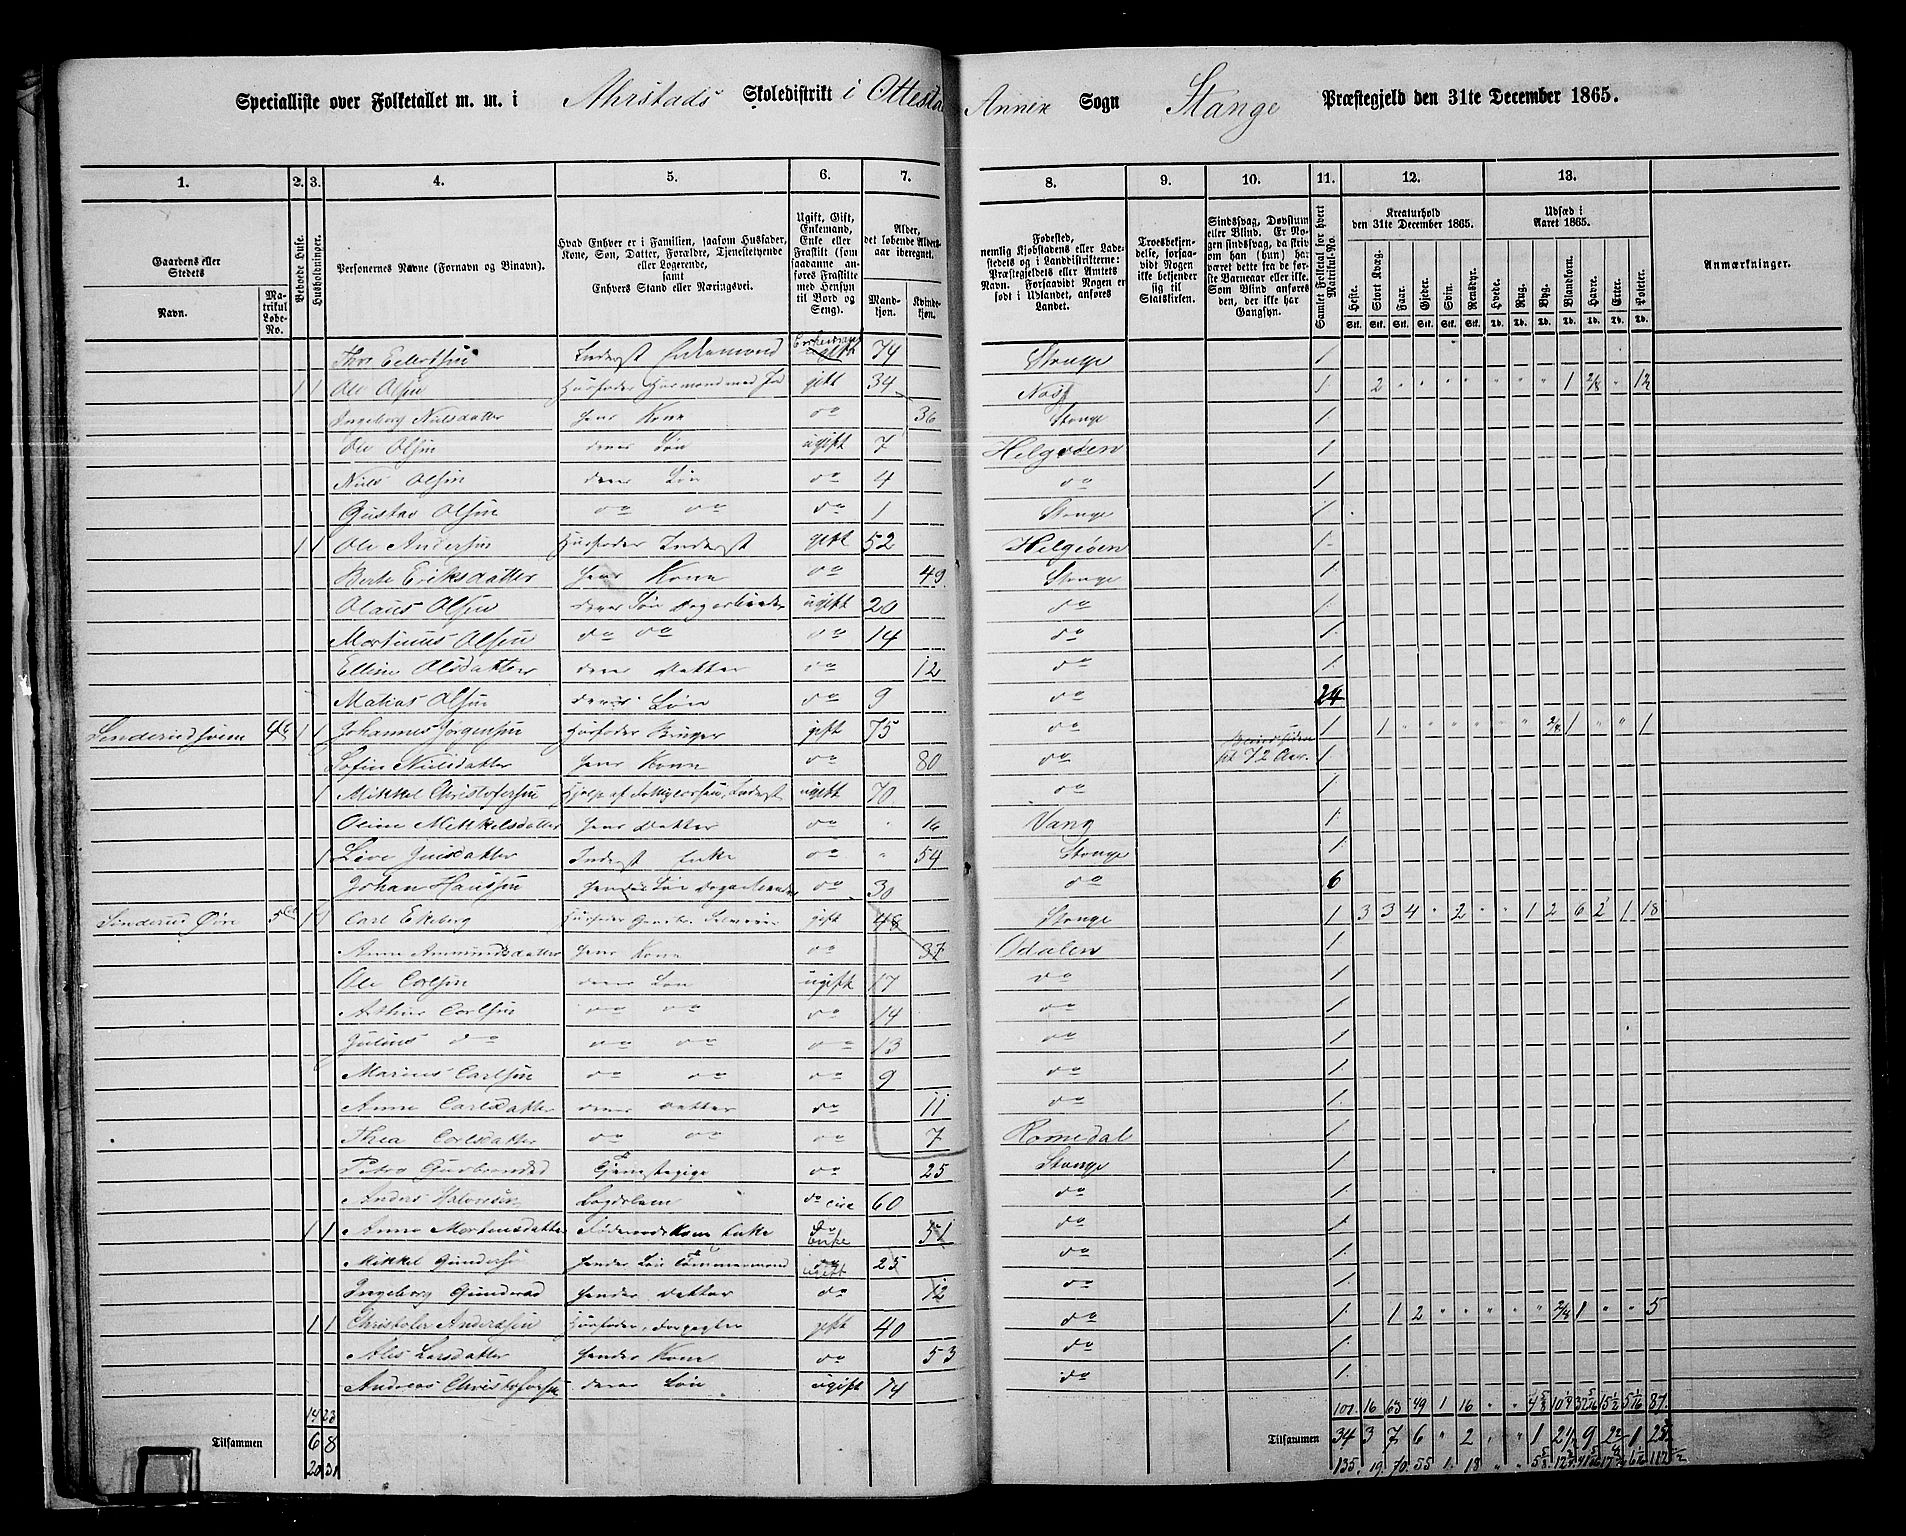 Specialliste over Folketallet m. m. i Ahrstads Skoledistrikt i Ottesta Annex Sogn Stange Præstegjeld den 31te December 1865.
1. 2. 3. 4. 5. 6. 7. 8. 9. 10. 11. 12. 13.
Gaardens eller Stedets
Navn.
Matrikul Løbe-No.
Beboede Huse.
Husholdninger.
Personernes Navne (Fornavn og Binavn).
Hvad Enhver er i Familien, saasom Husfader, Kone, Søn, Datter, Forældre, Tjenestetyende eller Logerende, samt Enhvers Stand eller Næringsvei.
Ugift, Gift, Enkemand, Enke eller Fraskilt (som saadanne anføres Fraskilte med Hensyn til Bord og Seng).
Alder, det løbende Alders-aar iberegnet.
Mandkjøn. Kvindekjøn.
Fødested, nemlig Kjøbstadens eller Ladestedets og i Landdistrikterne: Præstegjeldets eller Amtets Navn. Forsaavidt Nogen er født i Udlandet, anføres Landet.
Troesbekjendelse, forsaavidt Nogen ikke bekjender sig til Statskirken.
Sindssvag, Døvstum eller Blind. Er Nogen sindssvag, da skrives om han (hun) har været dette fra de første Barneaar eller ikke. Som Blind anføres den, der ikke har Gangsyn.
Samlet Folketal for hvert Matrikul-No.
Kreaturhold den 31te December 1865.
Heste. Stort Kvæg. Faar. Gjeder. Svin. Rensdyr.
Udsæd i Aaret 1865.
Hvede. Rug. Byg. Blandkorn. Havre. Erter. Poteter.
Anmærkninger.
Thor Eilertsen Inderst Enkemand 74 Stange 1
1 1 Ole Olsen Husfader Husmand med Jord gift 34 Næs 1 2 1 2/8 1½
Ingeborg Nielsdatter hans Kone do 36 Stange 1
Ole Olsen deres Søn ugift 7 Helgøen 1
Niels Olsen deres Søn do 4 do 1
Gustav Olsen do do do 1 Stange 1
1 1 Ole Andersen Husfader Inderst gift 52 Helgøen 1
Berte Eriksdatter hans Kone do 49 Stange 1
Olaus Olsen deres Søn Dagarbeider ugift 20 do 1
Martinus Olsen do do do 14 do 1
Elline Olsdatter deres Datter do 12 do 1
Matias Olsen deres Søn do 9 do 24
46 1 1 Johannes Jørgensen Husfader Bruger gift 75 do 1 1 2/8 1 1
Sofie Nielsdatter hans Kone do 80 do til 72 Aar. 1
1 Mikkel Christofersen ugift 70 do 1
Oline Mikkelsdatter hans Datter do 16 Vang 1
1 Live Inderst Enke do 54 Stange 1
Johan Hansen hendes Søn Dagarbeider do 30 do 6
Sinderud Øvre 1 1 Carl Ekeberg Husfader gift 48 Stange 1 3 3 4 2 1 2 6 2 1 18
Anne Amundsdatter hans Kone do 37 Odalen 1
Ole Carlsen deres Søn ugift 17 do 1
Arthur Carlsen do do do 14 do 1
Julius do do do do 13 do 1
Marius Carlsen do do do 9 do 1
Anne Carlsdatter deres Datter do 11 do 1
Thea Carlsdatter do do do 7 Romedal 1
Petra Tjenestepige do 25 Stange 1
Anders Halvorsen Lægdslem do 60 do 1
1 1 Anne Mortensdatter Enke Enke 51 do 1
Mikkel Gundersen hendes Søn Tømmermand ugift 25 do 1
Ingeborg hendes Datter do 12 do 1
1 1 Christofer Andersen Husfader, Forpagter gift 40 do 1 1 2 2/4 1 5
Alis Larsdatter hendes Kone do 53 do 1
Andreas Christofersen deres Søn ugift 14 do 1
14 23 101 16 63 49 1 16 87
Tilsammen 6 8 Tilsammen 34 3 7 6 2 1
20 31 135 19 70 55 1 18